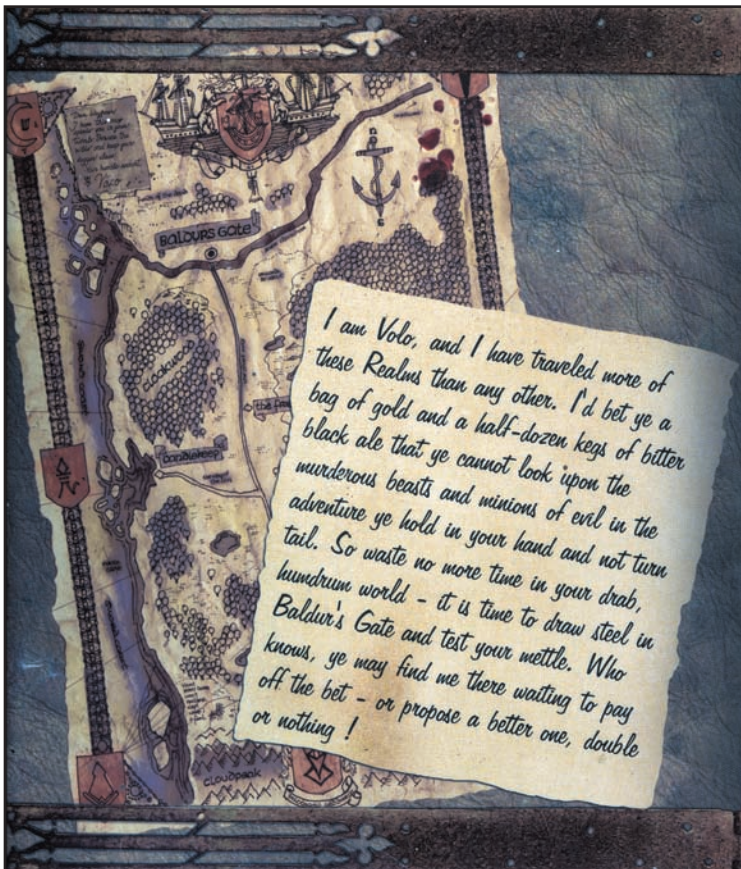 Volo
BALDURS GATE
CLOAKWOOD
Candlekeep
CLOUDPEAK
I am Volo, and I have traveled more of
these Realms than any other. I'd bet ye a
bag of gold and a half-dozen kegs of bitter
black ale that ye cannot look upon the
murderous beasts and minions of evil in the
adventure ye hold in your hand and not turn
tail. So waste no more time in your drab,
humdrum world - it is time to draw steel in
Baldur's Gate and test your mettle. Who
knows, ye may find me there waiting to pay
off the bet - or propose a better one, double
or nothing !